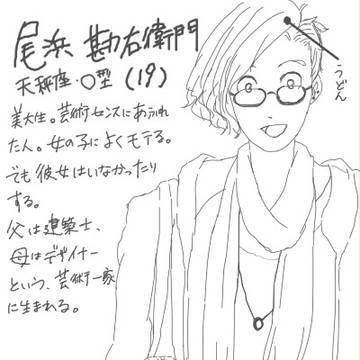 尾浜 勘右衛門
天秤座・O型 (19)
美大生。芸術センスにあふれ
た人。女の子によくモテる。
でも彼女はいなかったり
する。
父は建築士、
母はデザイナー
という、芸術一家
に生まれる。
うどん